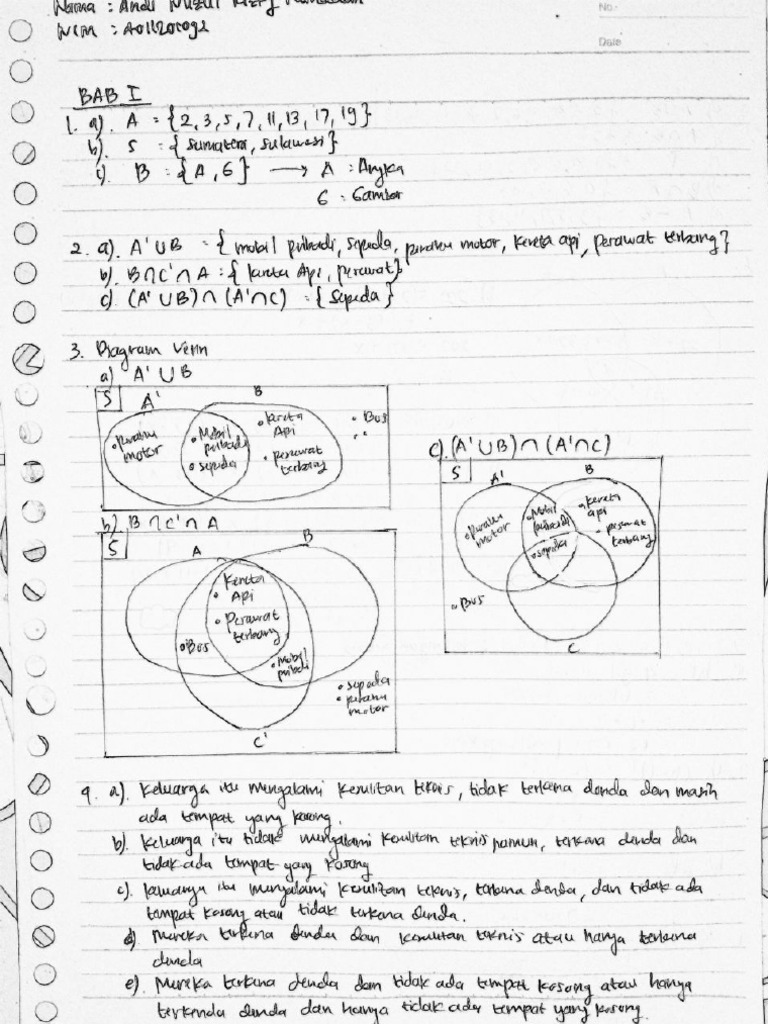 Nama : Andi
NIM : A011201092
No.
Date
BAB I
1. a). A = {2,3,5,7,11,13,17,19}
b). S = {sumatera, sulawesi}
c). B = {A, G} → A : Angka
G : Gambar
2. a). A' ∪ B = { mobil pribadi, sepeda, perahu motor, kereta api, perawat terbang}
b). B ∩ C' ∩ A : { kereta Api, perawat}
c). (A' ∪ B) ∩ (A' ∩ C) = { sepeda }
3. Diagram Venn
a) A' ∪ B
S
A'
B
• perahu
motor
• Mobil
pribadi
• sepeda
• kereta
Api
• perawat
terbang
• Bus
b) B ∩ C' ∩ A
S
A
B
Kereta
• Api
• Perawat
terbang
• Bus
• Mobil
pribadi
• sepeda
• perahu
motor
C'
c). (A' ∪ B) ∩ (A' ∩ C)
S
A'
B
• Perahu
motor
• Mobil
pribadi
• sepeda
• kereta
api
• pesawat
terbang
• Bus
C
4. a). Keluarga itu mengalami kesulitan teknis, tidak terkena denda dan masih
ada tempat yang kosong.
b). Keluarga itu tidak mengalami kesulitan teknis namun, terkena denda dan
tidak ada tempat yang kosong
c). keluarga itu mengalami kesulitan teknis, terkena denda, dan tidak ada
tempat kosong atau tidak terkena denda.
d) Mereka terkena denda dan kesulitan teknis atau hanya terkena
denda
e). Mereka terkena denda dan tidak ada tempat kosong atau hanya
terkenda denda dan hanya tidak ada tempat yang kosong.